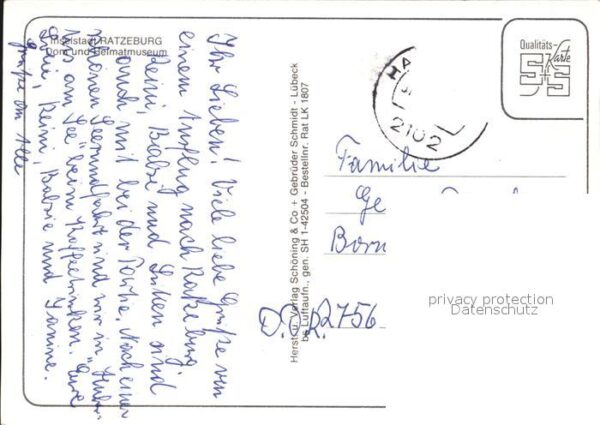 Inselstadt RATZEBURG
Dom und Heimatmuseum
Ihr Lieben! Viele liebe Grüße von
einem Ausflug nach Ratzeburg.
Reini, Babsi und sind
auch mit bei der Partie. Nach einer
schönen Seerundfahrt sind wir in
am See" beim Kaffeetrinken. Eure
Reini, Babsie und
Grüße an Alle
Herst. u. Verlag Schöning & Co + Gebrüder Schmidt - Lübeck
bis Luftaufn., gen. SH 1-42504 - Bestellnr. Rat LK 1807
Qualitäts-
Karte
S+S
HA
2102
Familie
Ge
Born
D.D.R. 2756
privacy protection
Datenschutz